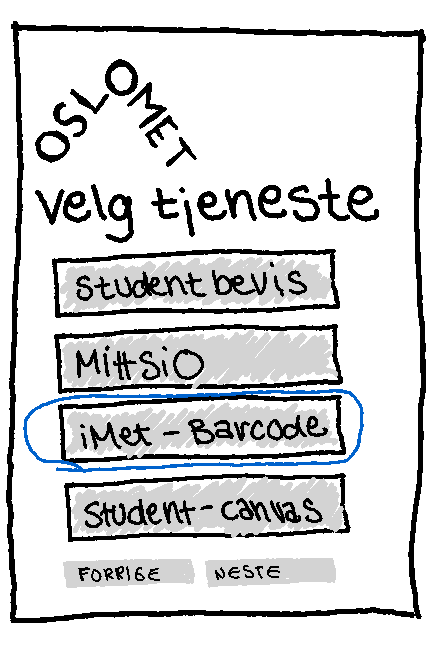 OSLOMET
Velg tjeneste
Studentbevis
MittSiO
iMet - Barcode
Student - canvas
FORRIGE NESTE